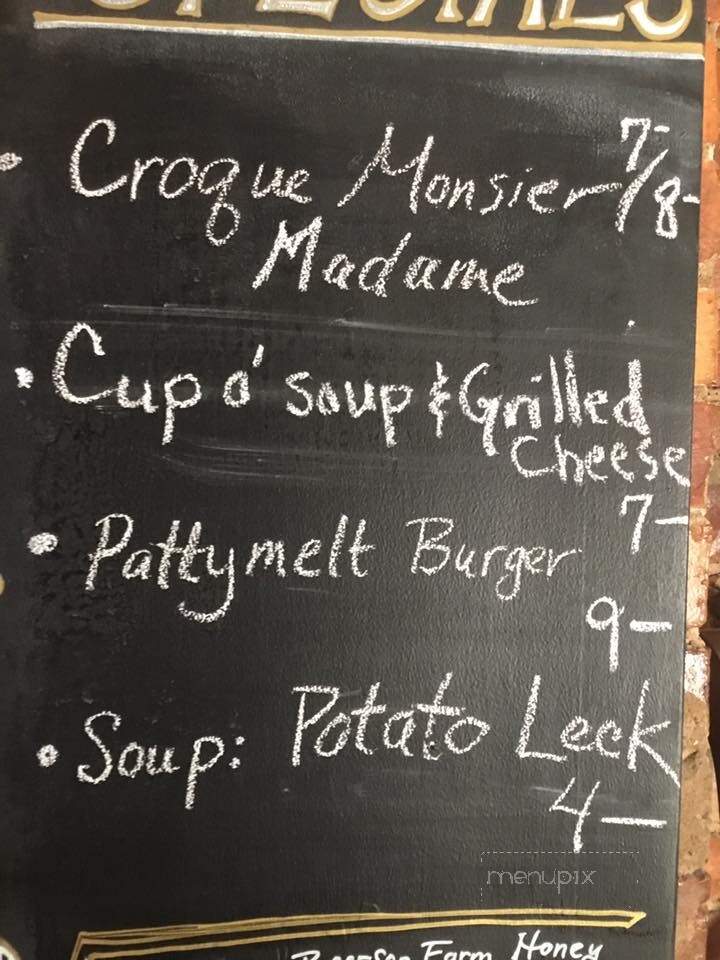 SPECIALS
• Croque Monsier 7-/8-
Madame
• Cup o' soup & Grilled
Cheese
7-
• Pattymelt Burger
9-
• Soup: Potato Leek
4-
menupix
Farm Honey